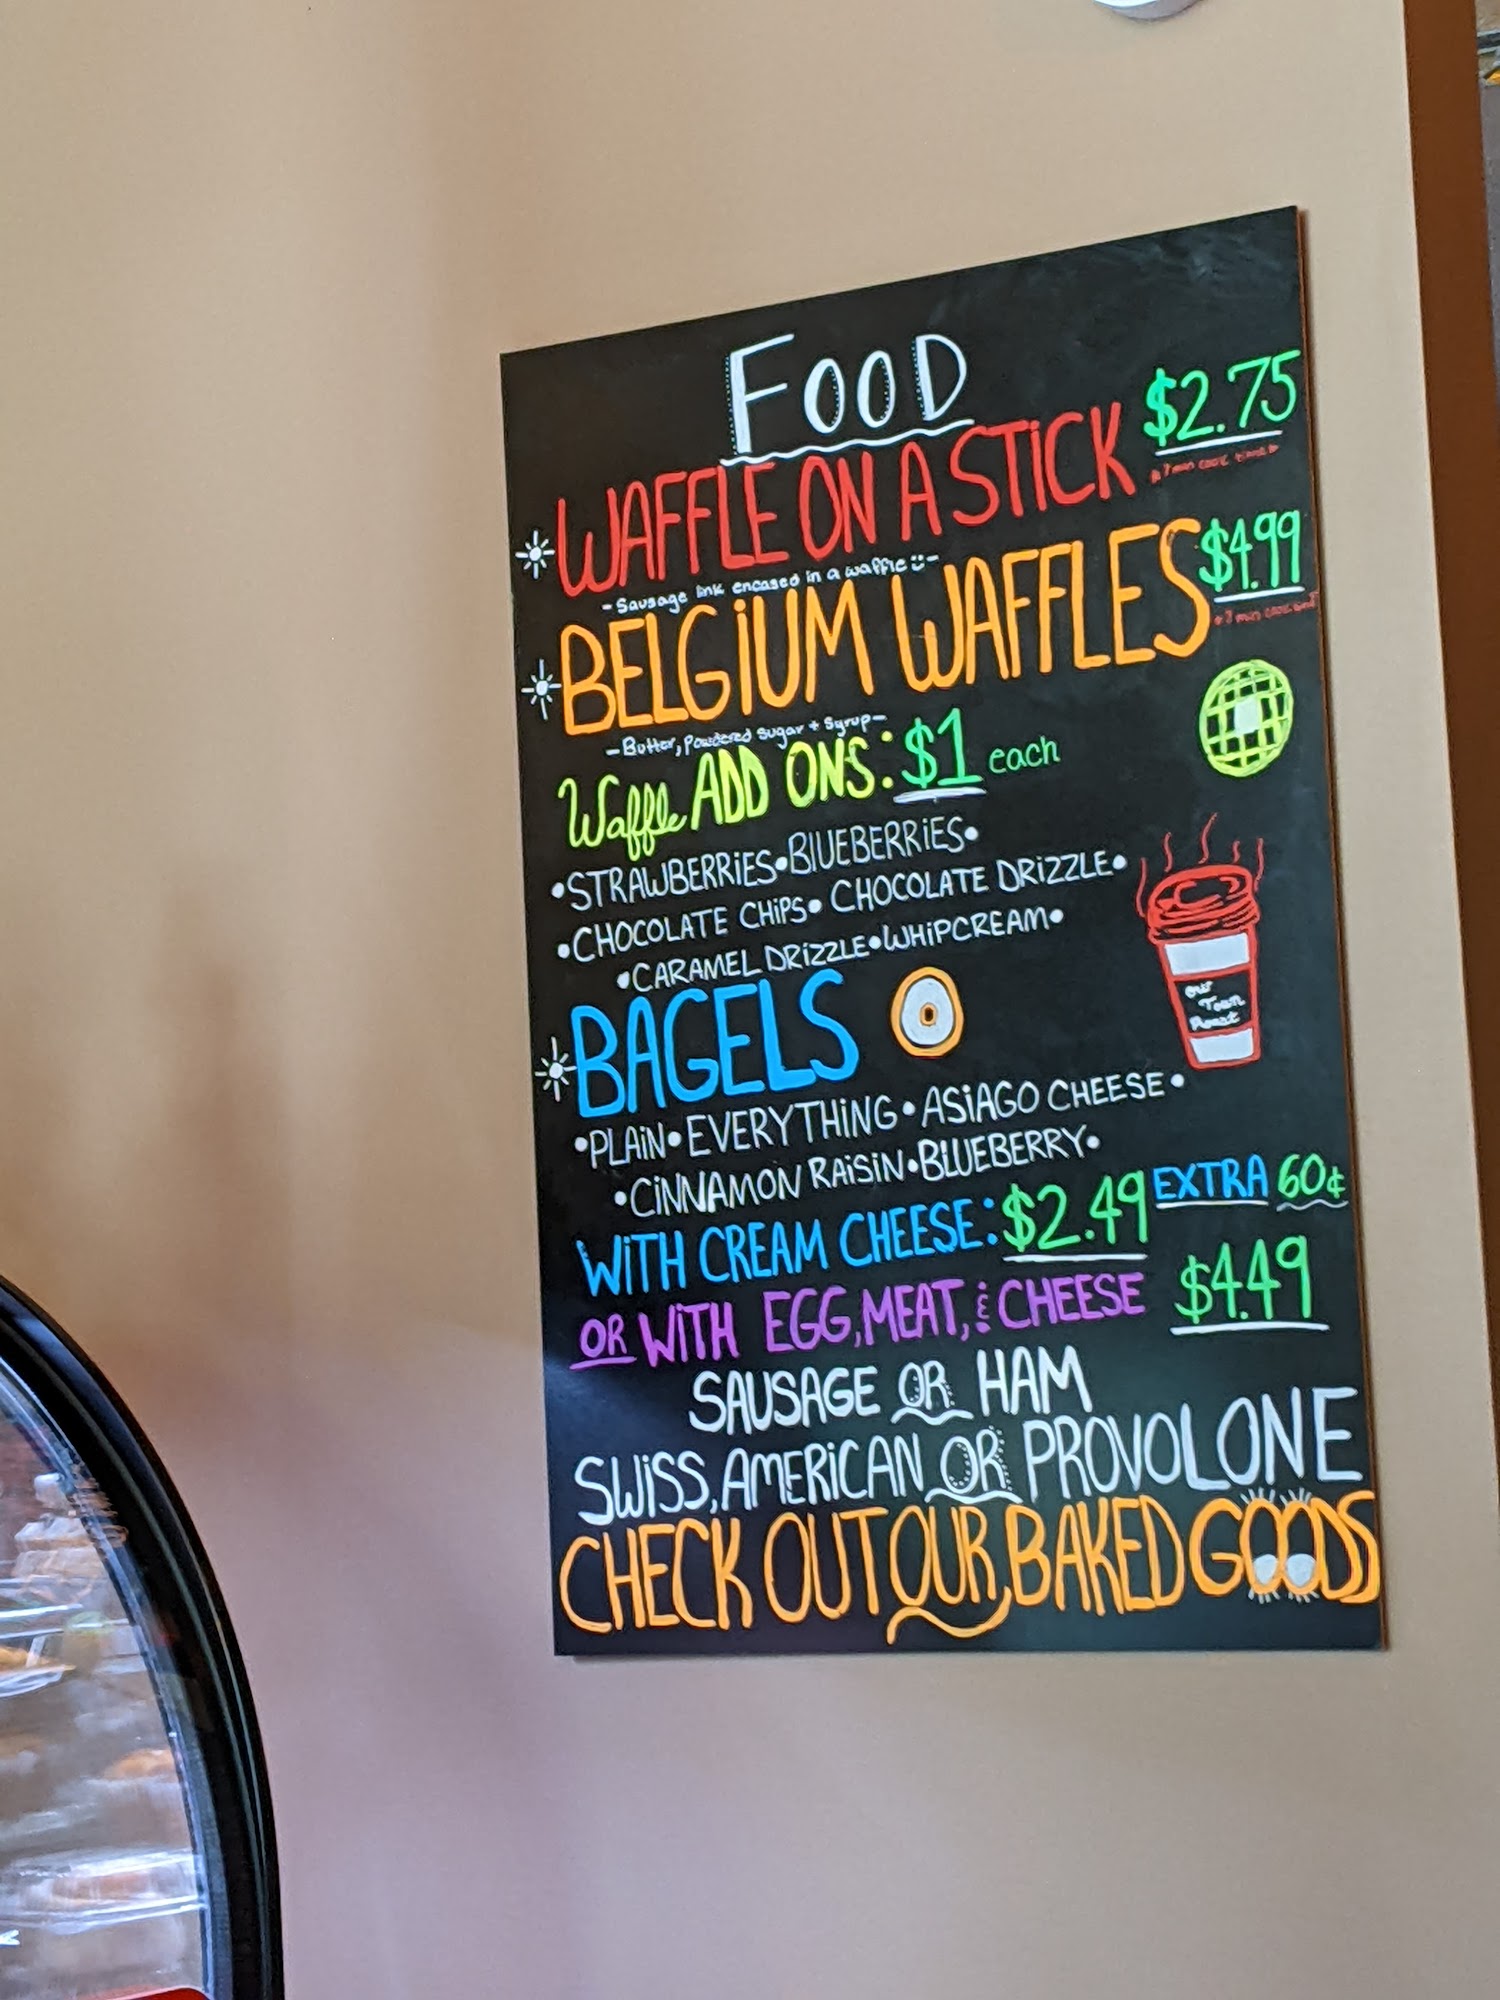 FOOD
WAFFLE ON A STICK $2.75
7 min cook time
- Sausage link encased in a waffle -
BELGIUM WAFFLES $4.99
min cook time
- Butter, Powdered sugar + Syrup -
Waffle ADD ONS: $1 each
•STRAWBERRIES•BLUEBERRIES•
•CHOCOLATE CHIPS• CHOCOLATE DRIZZLE•
•CARAMEL DRIZZLE•WHIPCREAM•
our
Town
Roast
BAGELS
•PLAIN•EVERYTHING•ASIAGO CHEESE•
•CINNAMON RAISIN•BLUEBERRY•
WITH CREAM CHEESE: $2.49 EXTRA 60¢
OR WITH EGG, MEAT, & CHEESE $4.49
SAUSAGE OR HAM
SWISS, AMERICAN OR PROVOLONE
CHECK OUT OUR BAKED GOODS